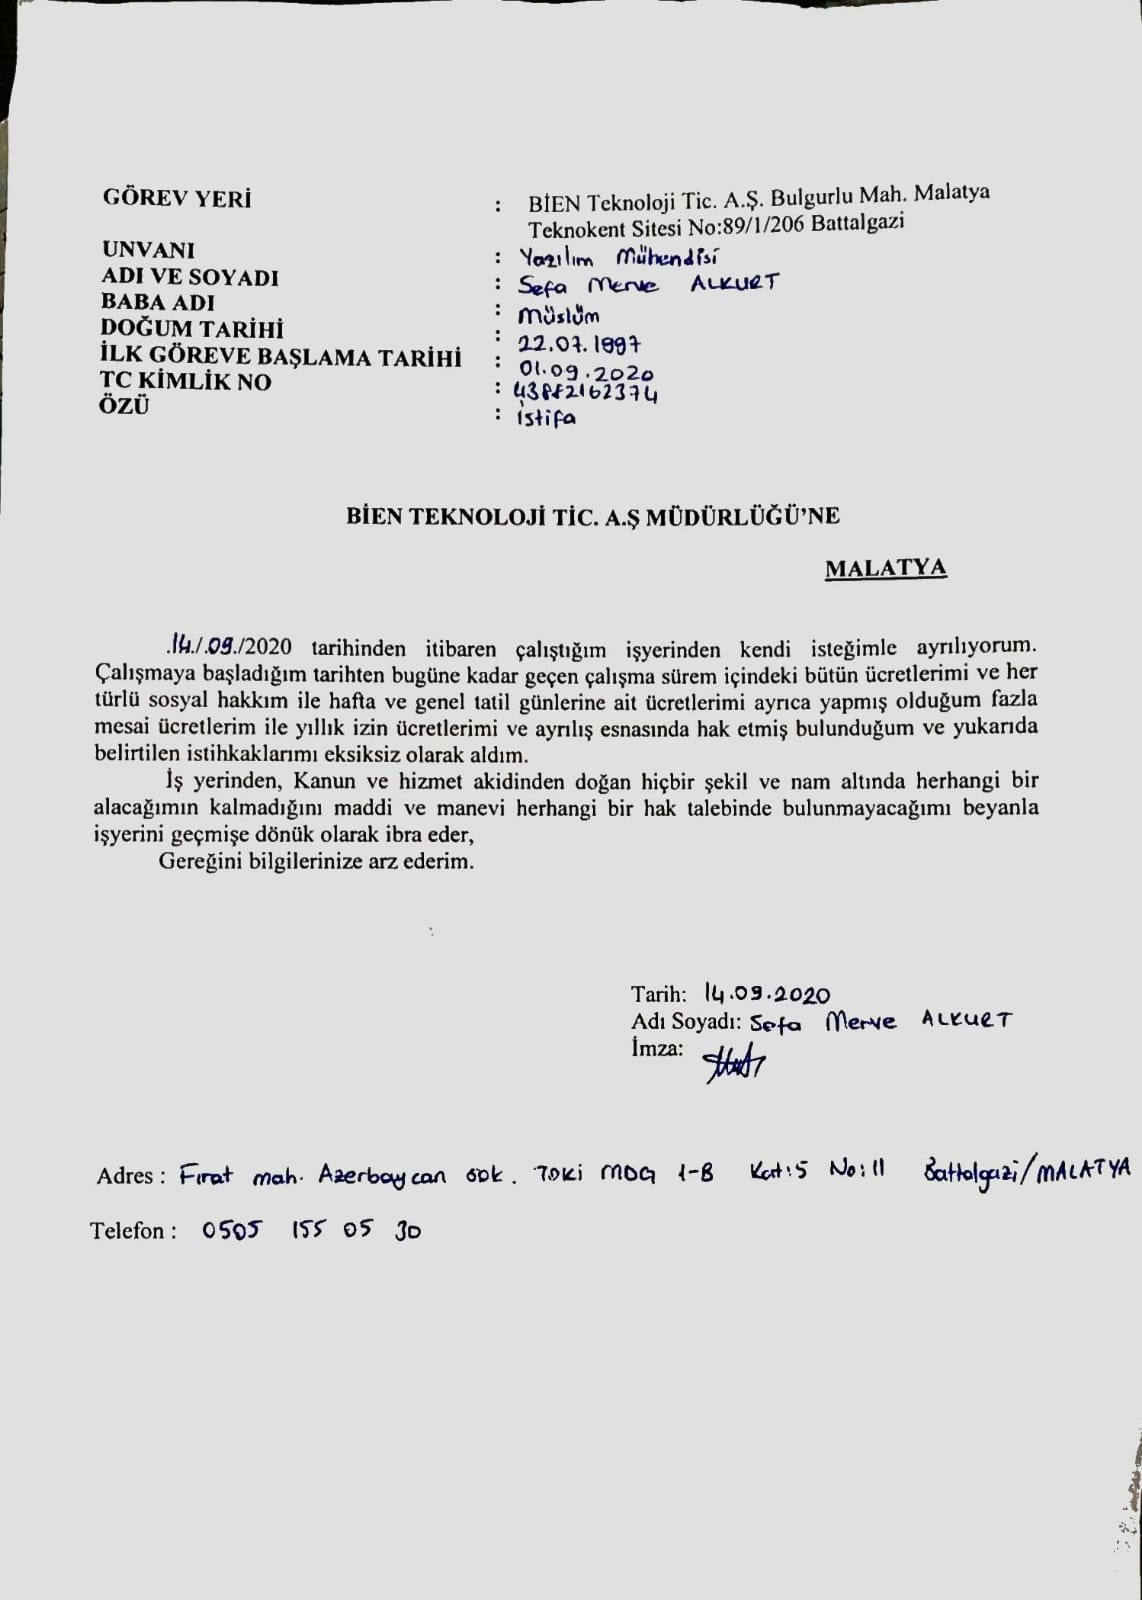 GÖREV YERİ : BİEN Teknoloji Tic. A.Ş. Bulgurlu Mah. Malatya
Teknokent Sitesi No:89/1/206 Battalgazi
UNVANI : Yazılım Mühendisi
ADI VE SOYADI : Sefa Merve ALKURT
BABA ADI : Müslüm
DOĞUM TARİHİ : 22.07.1997
İLK GÖREVE BAŞLAMA TARİHİ : 01.09.2020
TC KİMLİK NO :
ÖZÜ : İstifa
BİEN TEKNOLOJİ TİC. A.Ş MÜDÜRLÜĞÜ’NE
MALATYA
.14./.09./2020 tarihinden itibaren çalıştığım işyerinden kendi isteğimle ayrılıyorum.
Çalışmaya başladığım tarihten bugüne kadar geçen çalışma sürem içindeki bütün ücretlerimi ve her
türlü sosyal hakkım ile hafta ve genel tatil günlerine ait ücretlerimi ayrıca yapmış olduğum fazla
mesai ücretlerim ile yıllık izin ücretlerimi ve ayrılış esnasında hak etmiş bulunduğum ve yukarıda
belirtilen istihkaklarımı eksiksiz olarak aldım.
İş yerinden, Kanun ve hizmet akidinden doğan hiçbir şekil ve nam altında herhangi bir
alacağımın kalmadığını maddi ve manevi herhangi bir hak talebinde bulunmayacağımı beyanla
işyerini geçmişe dönük olarak ibra eder,
Gereğini bilgilerinize arz ederim.
Tarih: 14.09.2020
Adı Soyadı: Sefa Merve ALKURT
İmza:
Adres : Fırat mah. Azerbaycan sok. TOKİ MDG 1-B Kat:5 No:11 Battalgazi/MALATYA
Telefon : 0505 155 05 30